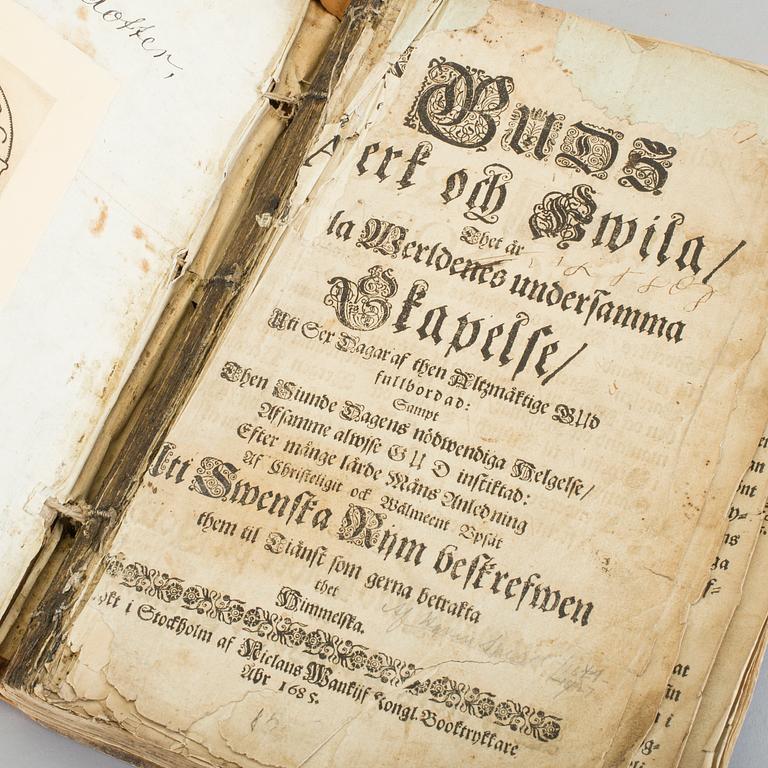 dotter,
GUDS
erk och Hwila/
Thet är
la Werldenes undersamma
Skapelse/
Uti Sex Dagar af then Altzmächtige GUD
fullbordad:
Sampt
Then Siunde Dagens nödwendiga Helgelse/
Afsamme alwise GUD instiktad:
Efter månge lärde Mäns Anledning
Af Christeligit ock Wälmeent Upsåt
Uti Swenska Rijm beskrefwen
them til Tiänst som gerna betrakta
thet
Himmelska.
ykt i Stockholm af Niclaus Wankijf Kongl. Booktryktare
Åhr 1685.